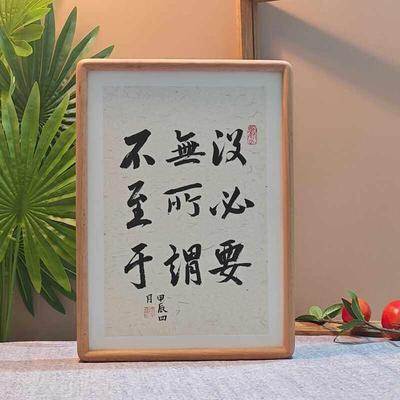 没必要
無所謂
不至于
甲辰四
月